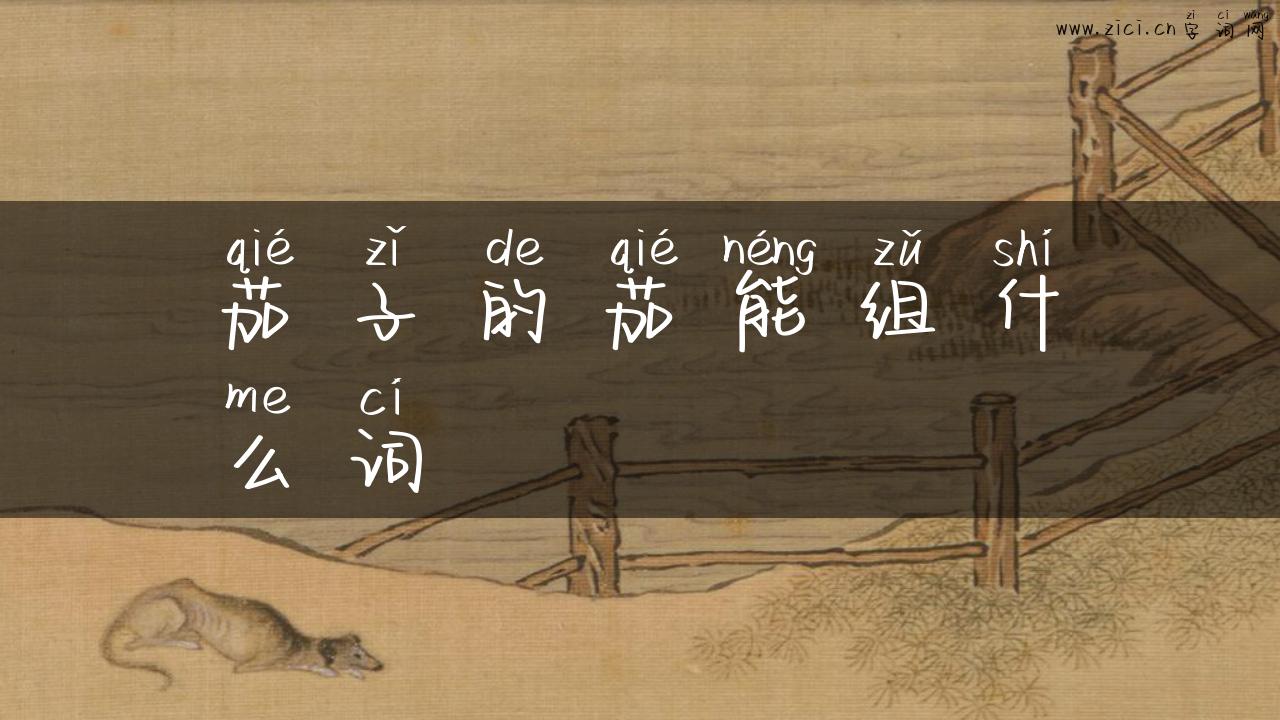 zi ci wang
www.zici.cn 字词网
qié zǐ de qié néng zǔ shí
茄子的茄能组什
me cí
么词